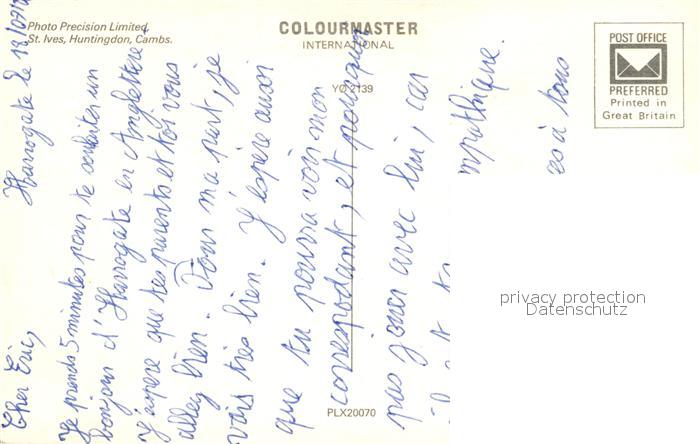 Photo Precision Limited,
St. Ives, Huntingdon, Cambs.
COLOURMASTER
INTERNATIONAL
YO 2139
POST OFFICE
PREFERRED
Printed in
Great Britain
Harrogate le 18/07/
Cher Eric,
Je prends 5 minutes pour te souhaiter un
bonjour d'Harrogate en Angleterre.
J'espère que tes parents et toi vous
allez bien. Pour ma part, je
vais très bien. J'espère aussi
que tu pourra voir mon
correspodant, et pourquoi
pas jouer avec lui, car
il
mpathique.
es à tous
privacy protection
Datenschutz
PLX20070